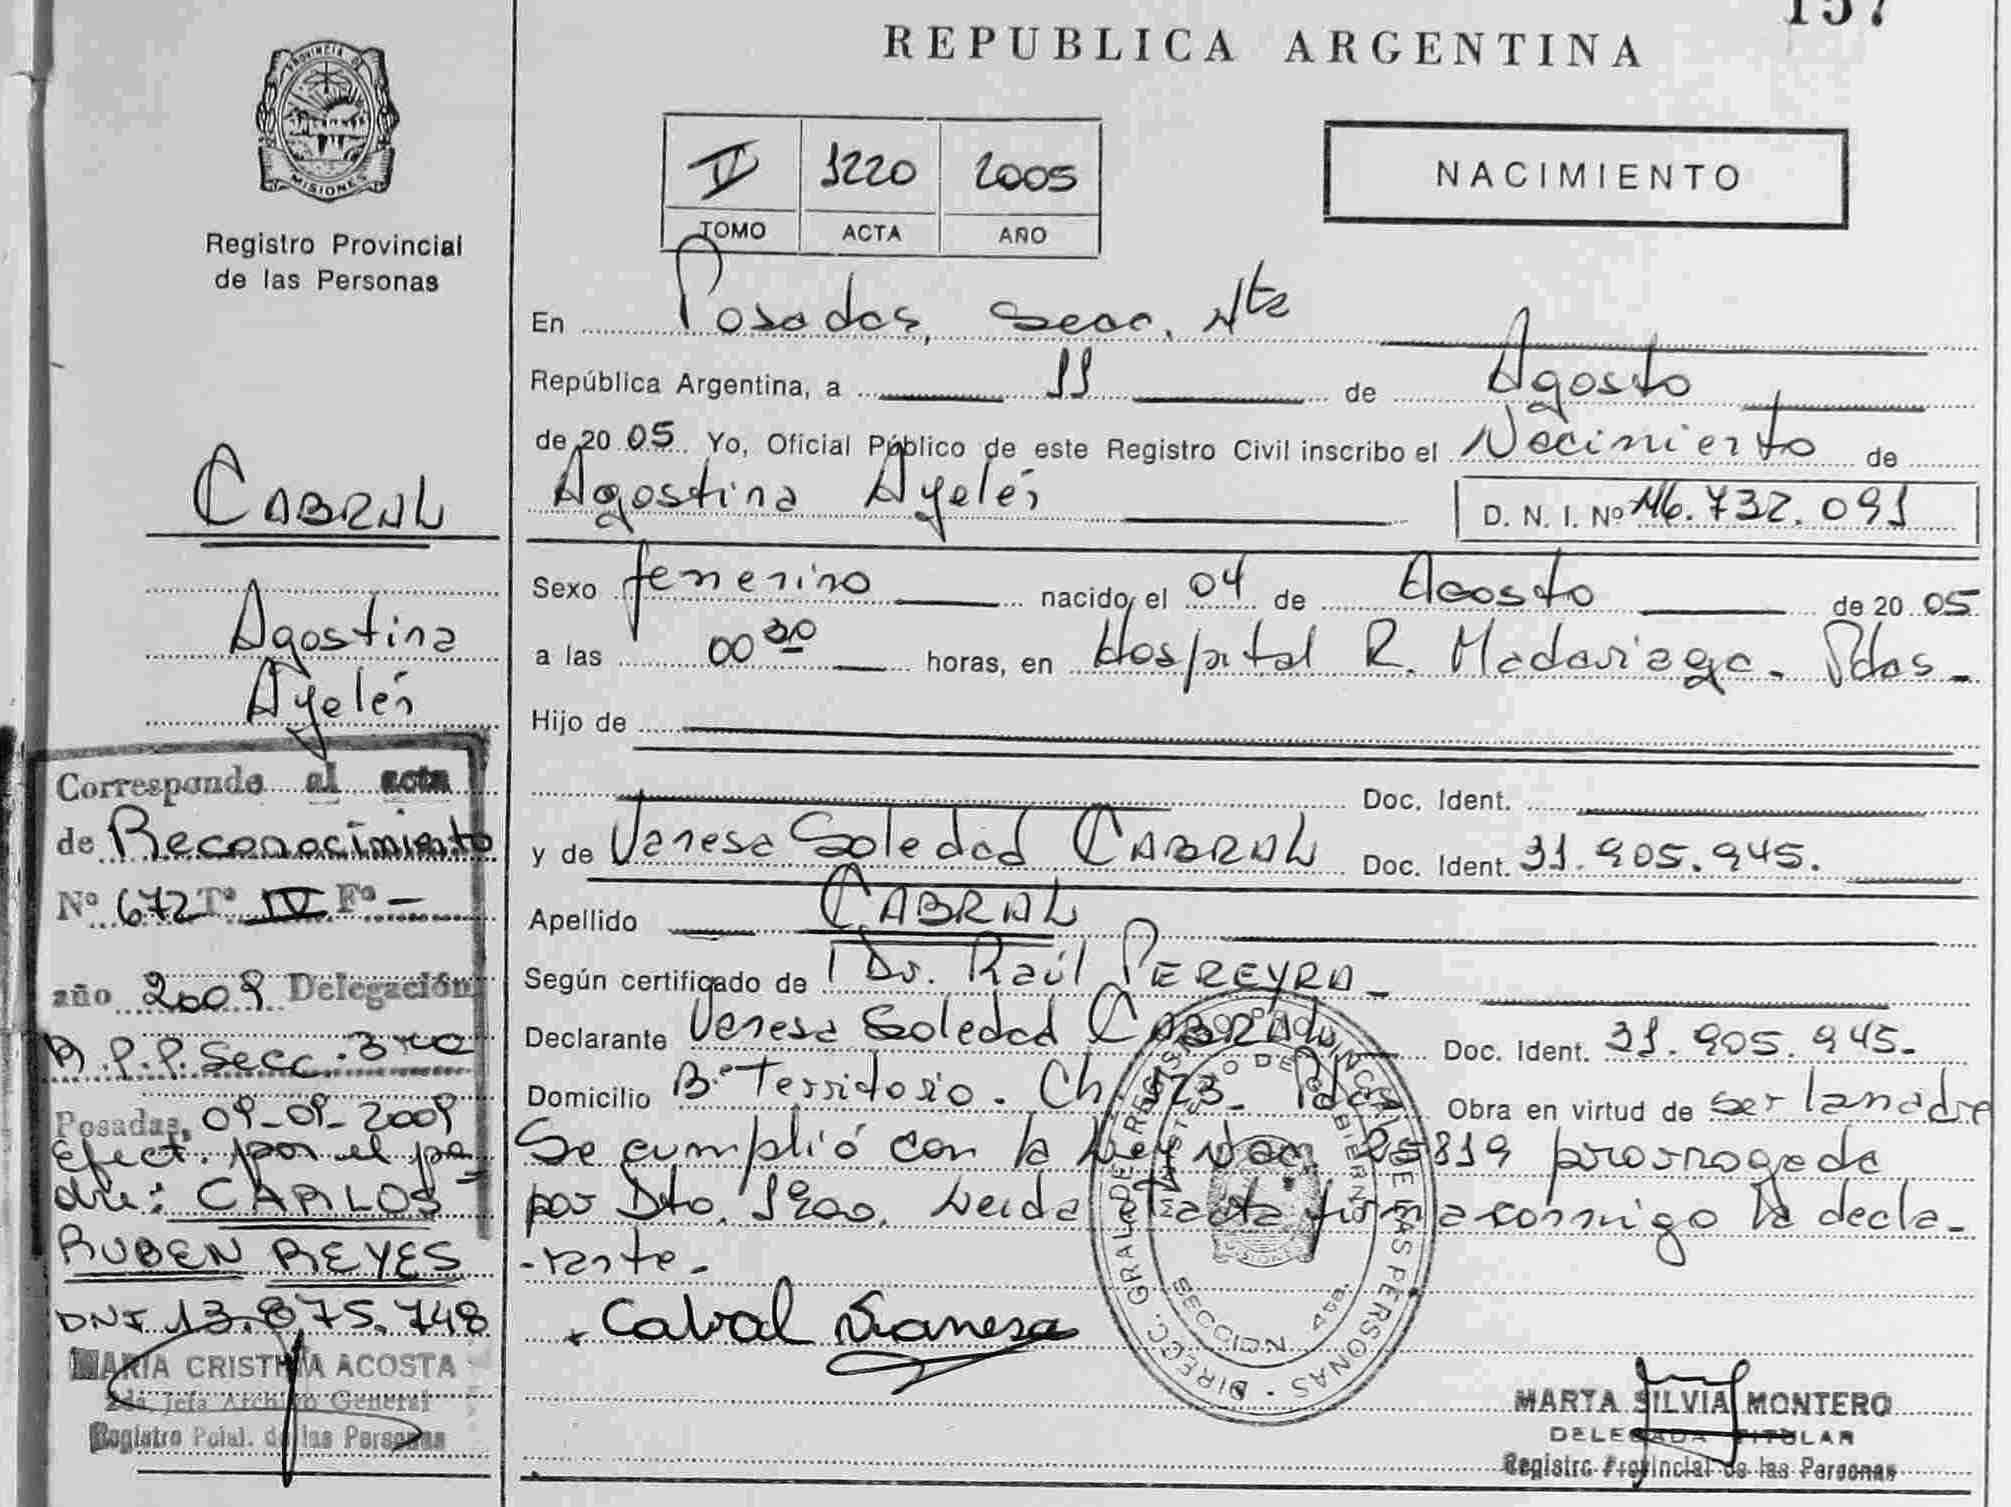 157
REPUBLICA ARGENTINA
PROVINCIA DE
MISIONES
Registro Provincial
de las Personas
IV 1220 2005
TOMO ACTA AÑO
NACIMIENTO
En Posadas, Secc. 4ta
República Argentina, a 11 de Agosto
de 2005 Yo, Oficial Público de este Registro Civil inscribo el Nacimiento de
Agostina Ayelén D. N. I. Nº 46.732.091
Sexo femenino nacido el 04 de Agosto de 2005
a las 00 30 horas, en Hospital R. Madariaga - Pdas -
Hijo de
Doc. Ident.
y de Vanesa Soledad CABRAL Doc. Ident. 31.905.945.
Apellido CABRAL
Según certificado de Dr. Raúl PEREYRA -
Declarante Vanesa Soledad CABRAL Doc. Ident. 31.905.945.-
Domicilio Bº Territorio. Ch 123 - Pdas Obra en virtud de ser la madre
Se cumplió con la Ley 25819 prorrogada
por Dto. 1900. Leida el acta firma conmigo la decla-
-rante-
Cabral Vanesa
DIRECC. GRAL. DE REGISTRO PROVINCIAL DE LAS PERSONAS
MINISTERIO DE GOBIERNO
MISIONES
SECCION 4ta.
MARTA SILVIA MONTERO
DELEGADA TITULAR
Registro Provincial de las Personas
CABRAL
Agostina
Ayelén
Corresponde al acta
de Reconocimiento
Nº 672 Tº IV Fº -
año 2009 Delegación
R.P.P. Secc. 3ra
Posadas, 09-09-2009
Efect. por el pa-
dre: CARLOS
RUBEN REYES
DNI 13.875.748
MARIA CRISTINA ACOSTA
2da Jefa Archivo General
Registro Pcial. de las Personas